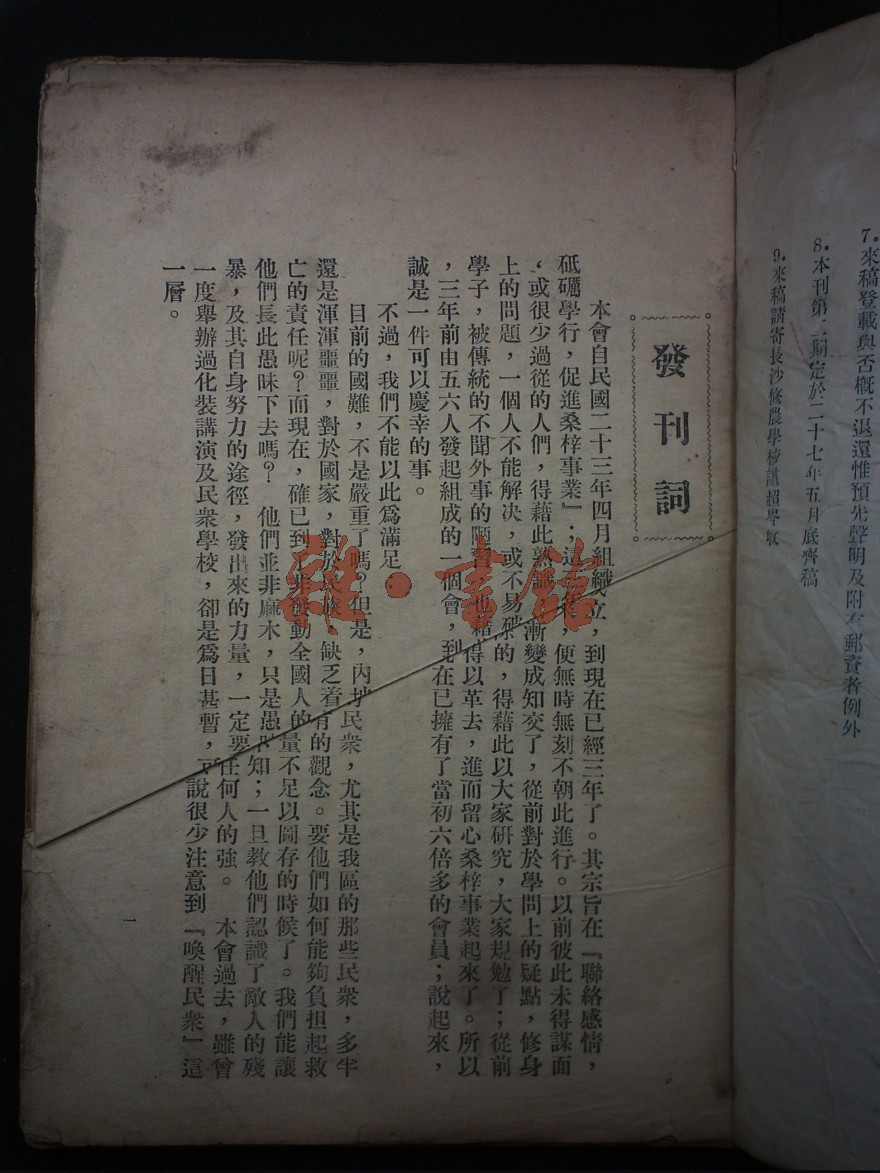 7.來稿登載與否概不退還惟預先聲明及附有郵資者例外
8.本刊第二期定於二十七年五月底齊稿
9.來稿請寄長沙修農學校諶超岑收
發刊詞
本會自民國二十三年四月組織立,到現在已經三年了。其宗旨在『聯絡感情,
砥礪學行,促進桑梓事業』;這來,便無時無刻不朝此進行。以前彼此未得謀面
,或很少過從的人們,得藉此熟識漸變成知交了,從前對於學問上的疑點,修身
上的問題,一個人不能解决,或不易的,得藉此以大家研究,大家規勉了;從前
學子,被傳統的不聞外事的陋習,也藉得以革去,進而留心桑梓事業起來了。所以
,三年前由五六人發起組成的一個會,到在已擁有了當初六倍多的會員;說起來,
誠是一件可以慶幸的事。
不過,我們不能以此爲滿足;
目前的國難,不是嚴重了嗎?但是,內地民衆,尤其是我區的那些民衆,多半
還是渾渾噩噩,對於國家,對於民族,缺乏着有的觀念。要他們如何能夠負担起救
亡的責任呢?而現在,確已到了非發動全國人的量不足以圖存的時候了。我們能讓
他們長此愚昧下去嗎?他們並非麻木,只是愚知;一旦教他們認識了敵人的殘
暴,及其自身努力的途徑,發出來的力量,一定要任何人的強。本會過去,雖曾
一度舉辦過化裝講演及民衆學校,卻是爲日甚暫,可說很少注意到『喚醒民衆』這
一層。
一
雜·書館